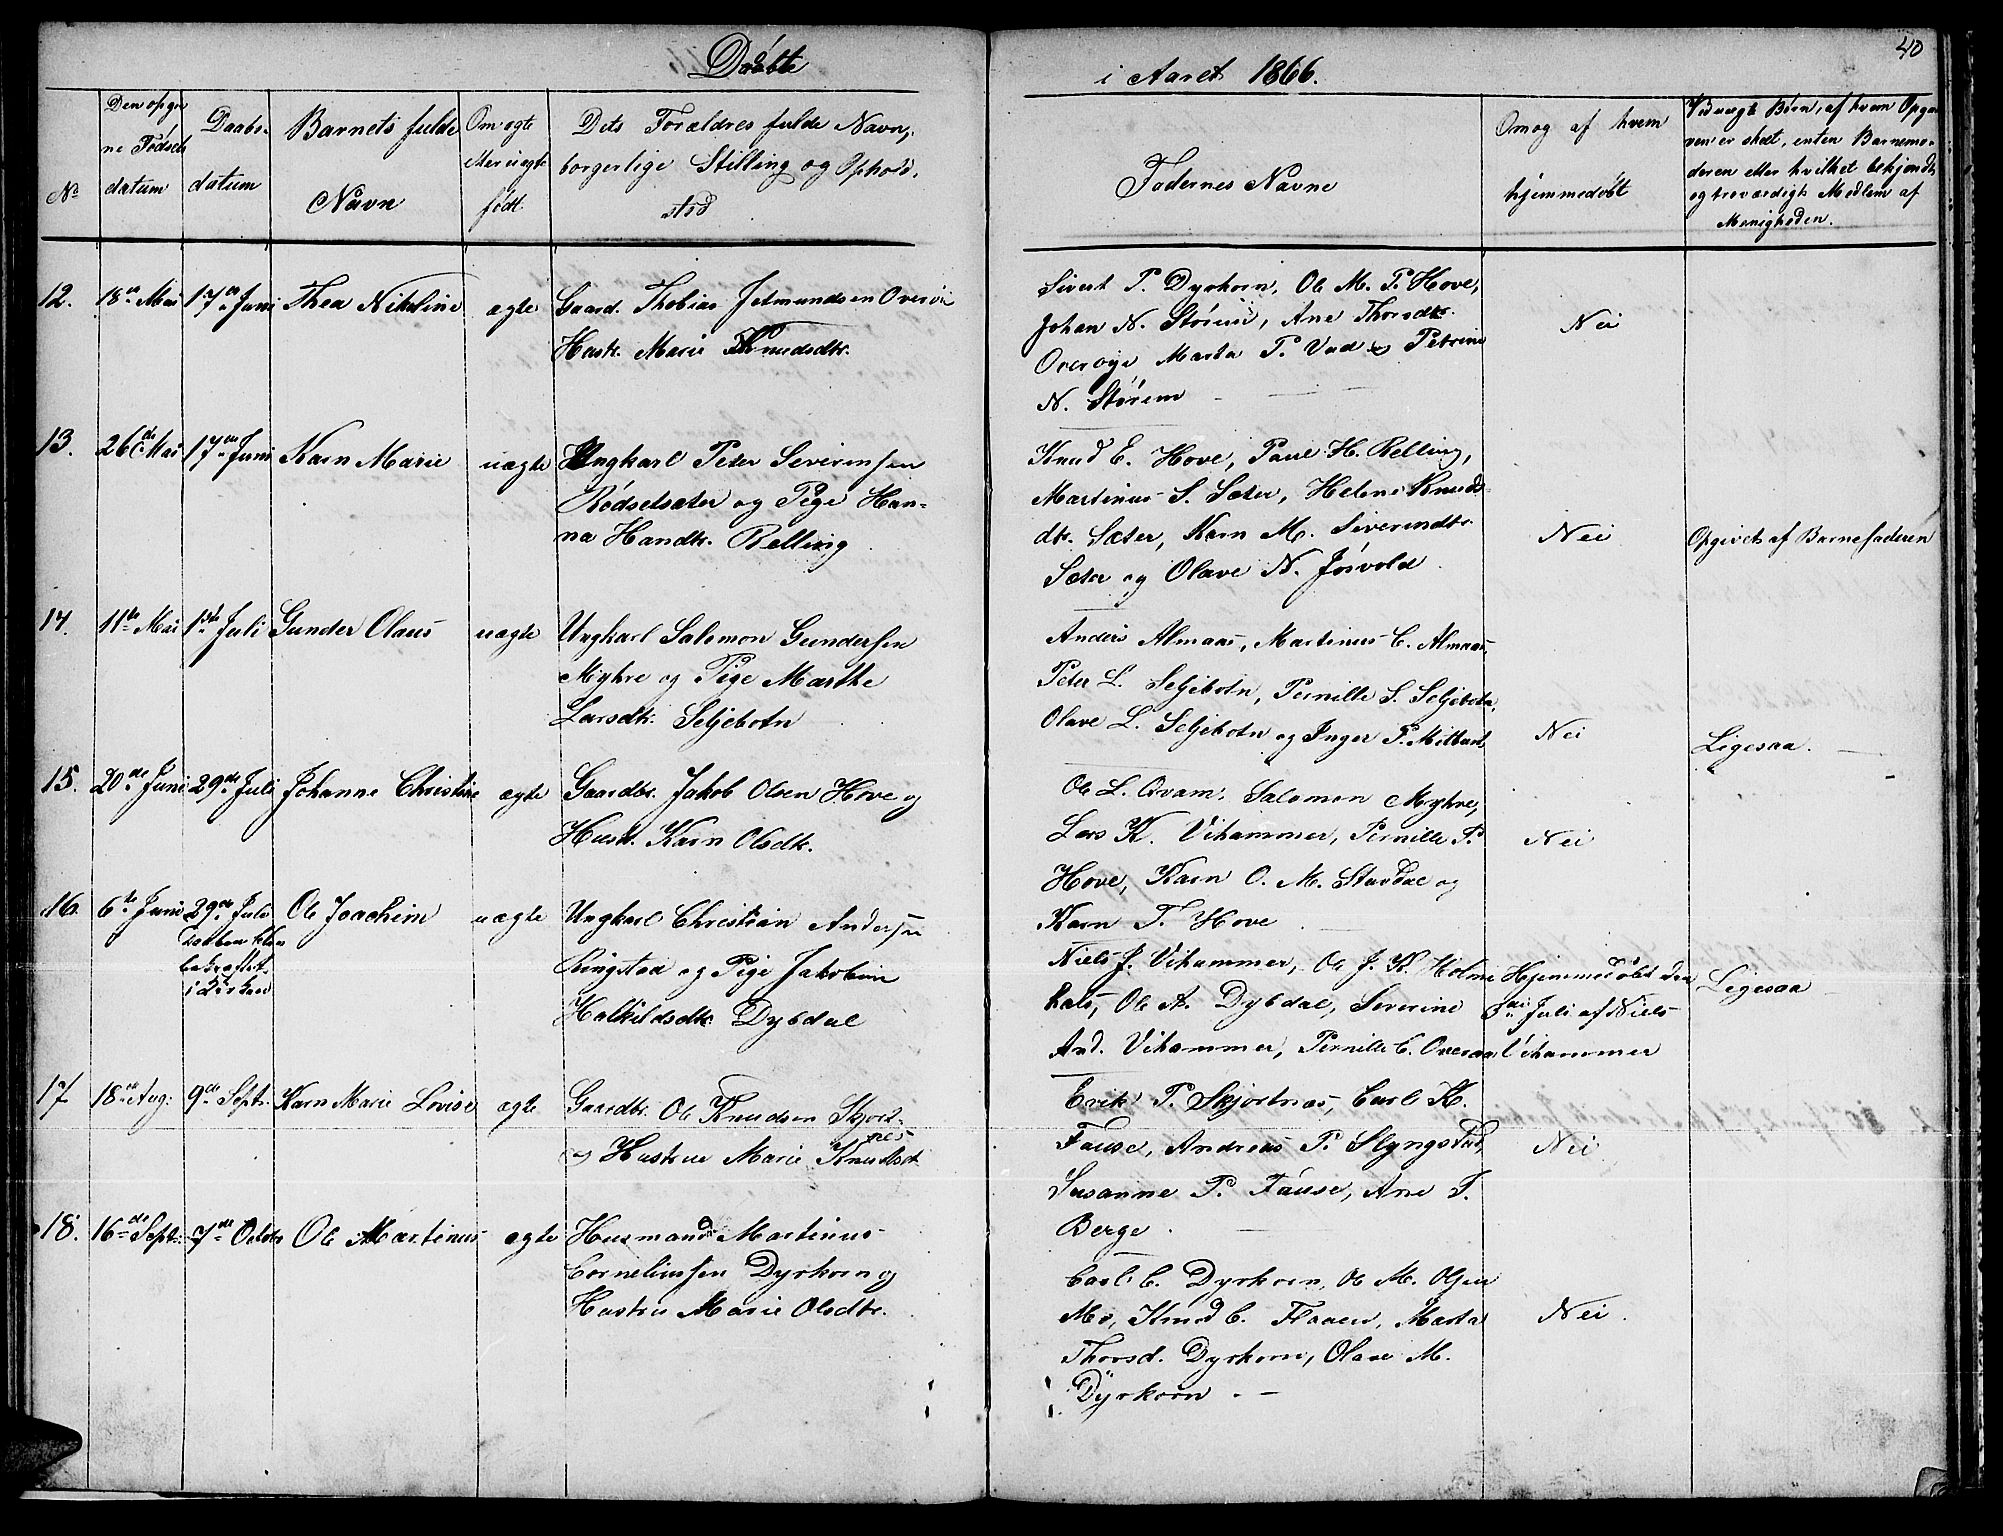 Døbte
i Aaret 1866.
40
No
Den opgivne Fødsels datum
Daabsdatum
Barnets fulde Navn
Om ægte eller uægte født.
Dets Forældres fulde Navn, borgerlige Stilling og Opholdsted
Fadernes Navne
Om og af hvem hjemmedøbt
Ved uægte Børn, af hvem Opgaven er skeet, enten Barnemoderen eller hvilket bekjendt og troværdigt Medlem af Menigheden.
12. 18de Mai 17de Juni Thea Nikoline ægte Gaard. Thobias Jetmundsen Overøie
Hustr. Marie Knudsdtr.
Sivert P. Dyrkorn, Ole M. P. Hove,
Johan N. Störem, Ane Thorsdtr.
Overøye, Marta P. Vad og Petrine
N. Störem
Nei
13. 26de Mai 17de Juni Karn Marie uægte Ungkarl Peter Severinsen
Rødsetsæter og Pige Han-
na Handtr. Relling
Knud E. Hove, Paul H. Relling,
Martinus S. Sæter, Helene Knuds-
dtr. Sæter, Karn M. Siverindtr.
Sæter og Olave N. Jösvold
Nei
Opgivet af Barnefaderen
14. 11te Mai 1ste Juli Gunder Olaus uægte Ungkarl Salomon Gundersen
Myhre og Pige Marthe
Larsdtr. Seljebotn
Anders Almaas, Martinus C. Almaas,
Peter L. Seljebotn, Pernille S. Seljebotn,
Olave L. Seljebotn og Inger P.
Nei
Ligesaa.
15. 20de Juni 29de Juli Johanne Christine ægte Gaardbr. Jakob Olsen Hove og
Hustr. Karn Olsdtr.
Ole L. Qvam, Salomon Myhre,
Lars K. Vihammer, Pernille P.
Hove, Karn O. M. Stavdal og
Karn T. Hove
Nei
16. 6te Juni 29de Juli Ole Joachim uægte Ungkarl Christian Andersen
Daaben blev
bekræftet
i Kirken
Ringstad og Pige Jakobine
Halkildsdtr. Dybdal
Niels J. Vihammer, Ole J. K. Holme
hals, Ole A. Dybdal, Severine
And. Vihammer, Pernille C. Overaa
Hjemmedøbt den
Juli af Niels
Vihammer
Ligesaa
17 18de Aug: 9de Septr. Karn Marie Lovise ægte Gaardbr. Ole Knudsen Skjort-
nes
og Hustrue Marie Knudtsd
Erik P. Skjortnes, Carl K.
Fause, Andreas P. Slyngstad,
Susanne P. Fause, Ane T.
Berge.
Nei
18. 16de Sept: 7de Octbr Ole Martinus ægte Husmand Martinus
Corneliussen Dyrkorn og
Hustru Marie Olsdtr.
Carl C. Dyrkorn, Ole M. Olsen
Mo, Knud C. Flaaen, Marta
Thorsd. Dyrkorn, Olave M.
Dyrkorn.
Nei.